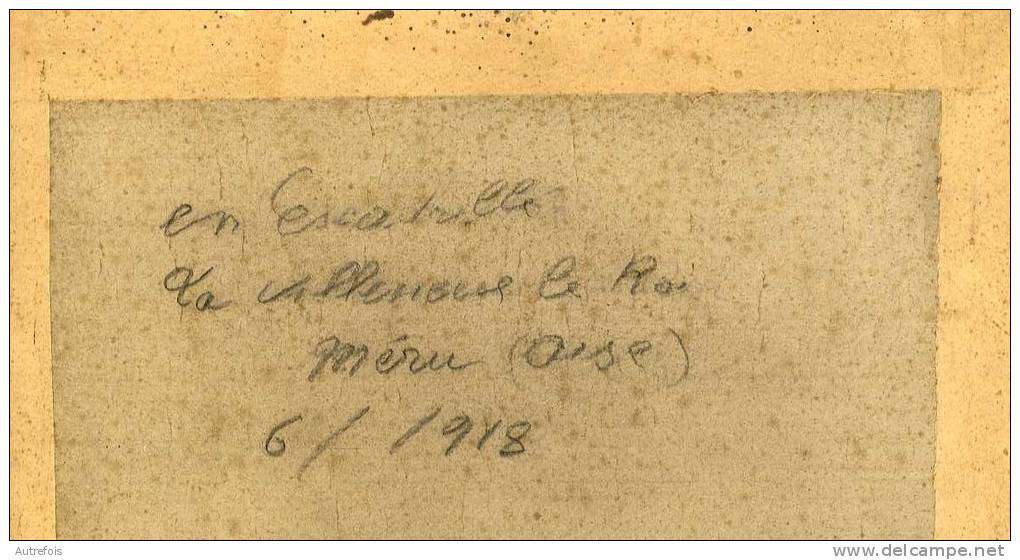 en Escadrille
La Villeneuve le Roi
Méru (Oise)
6/ /1918
Autrefois
www.delcampe.net